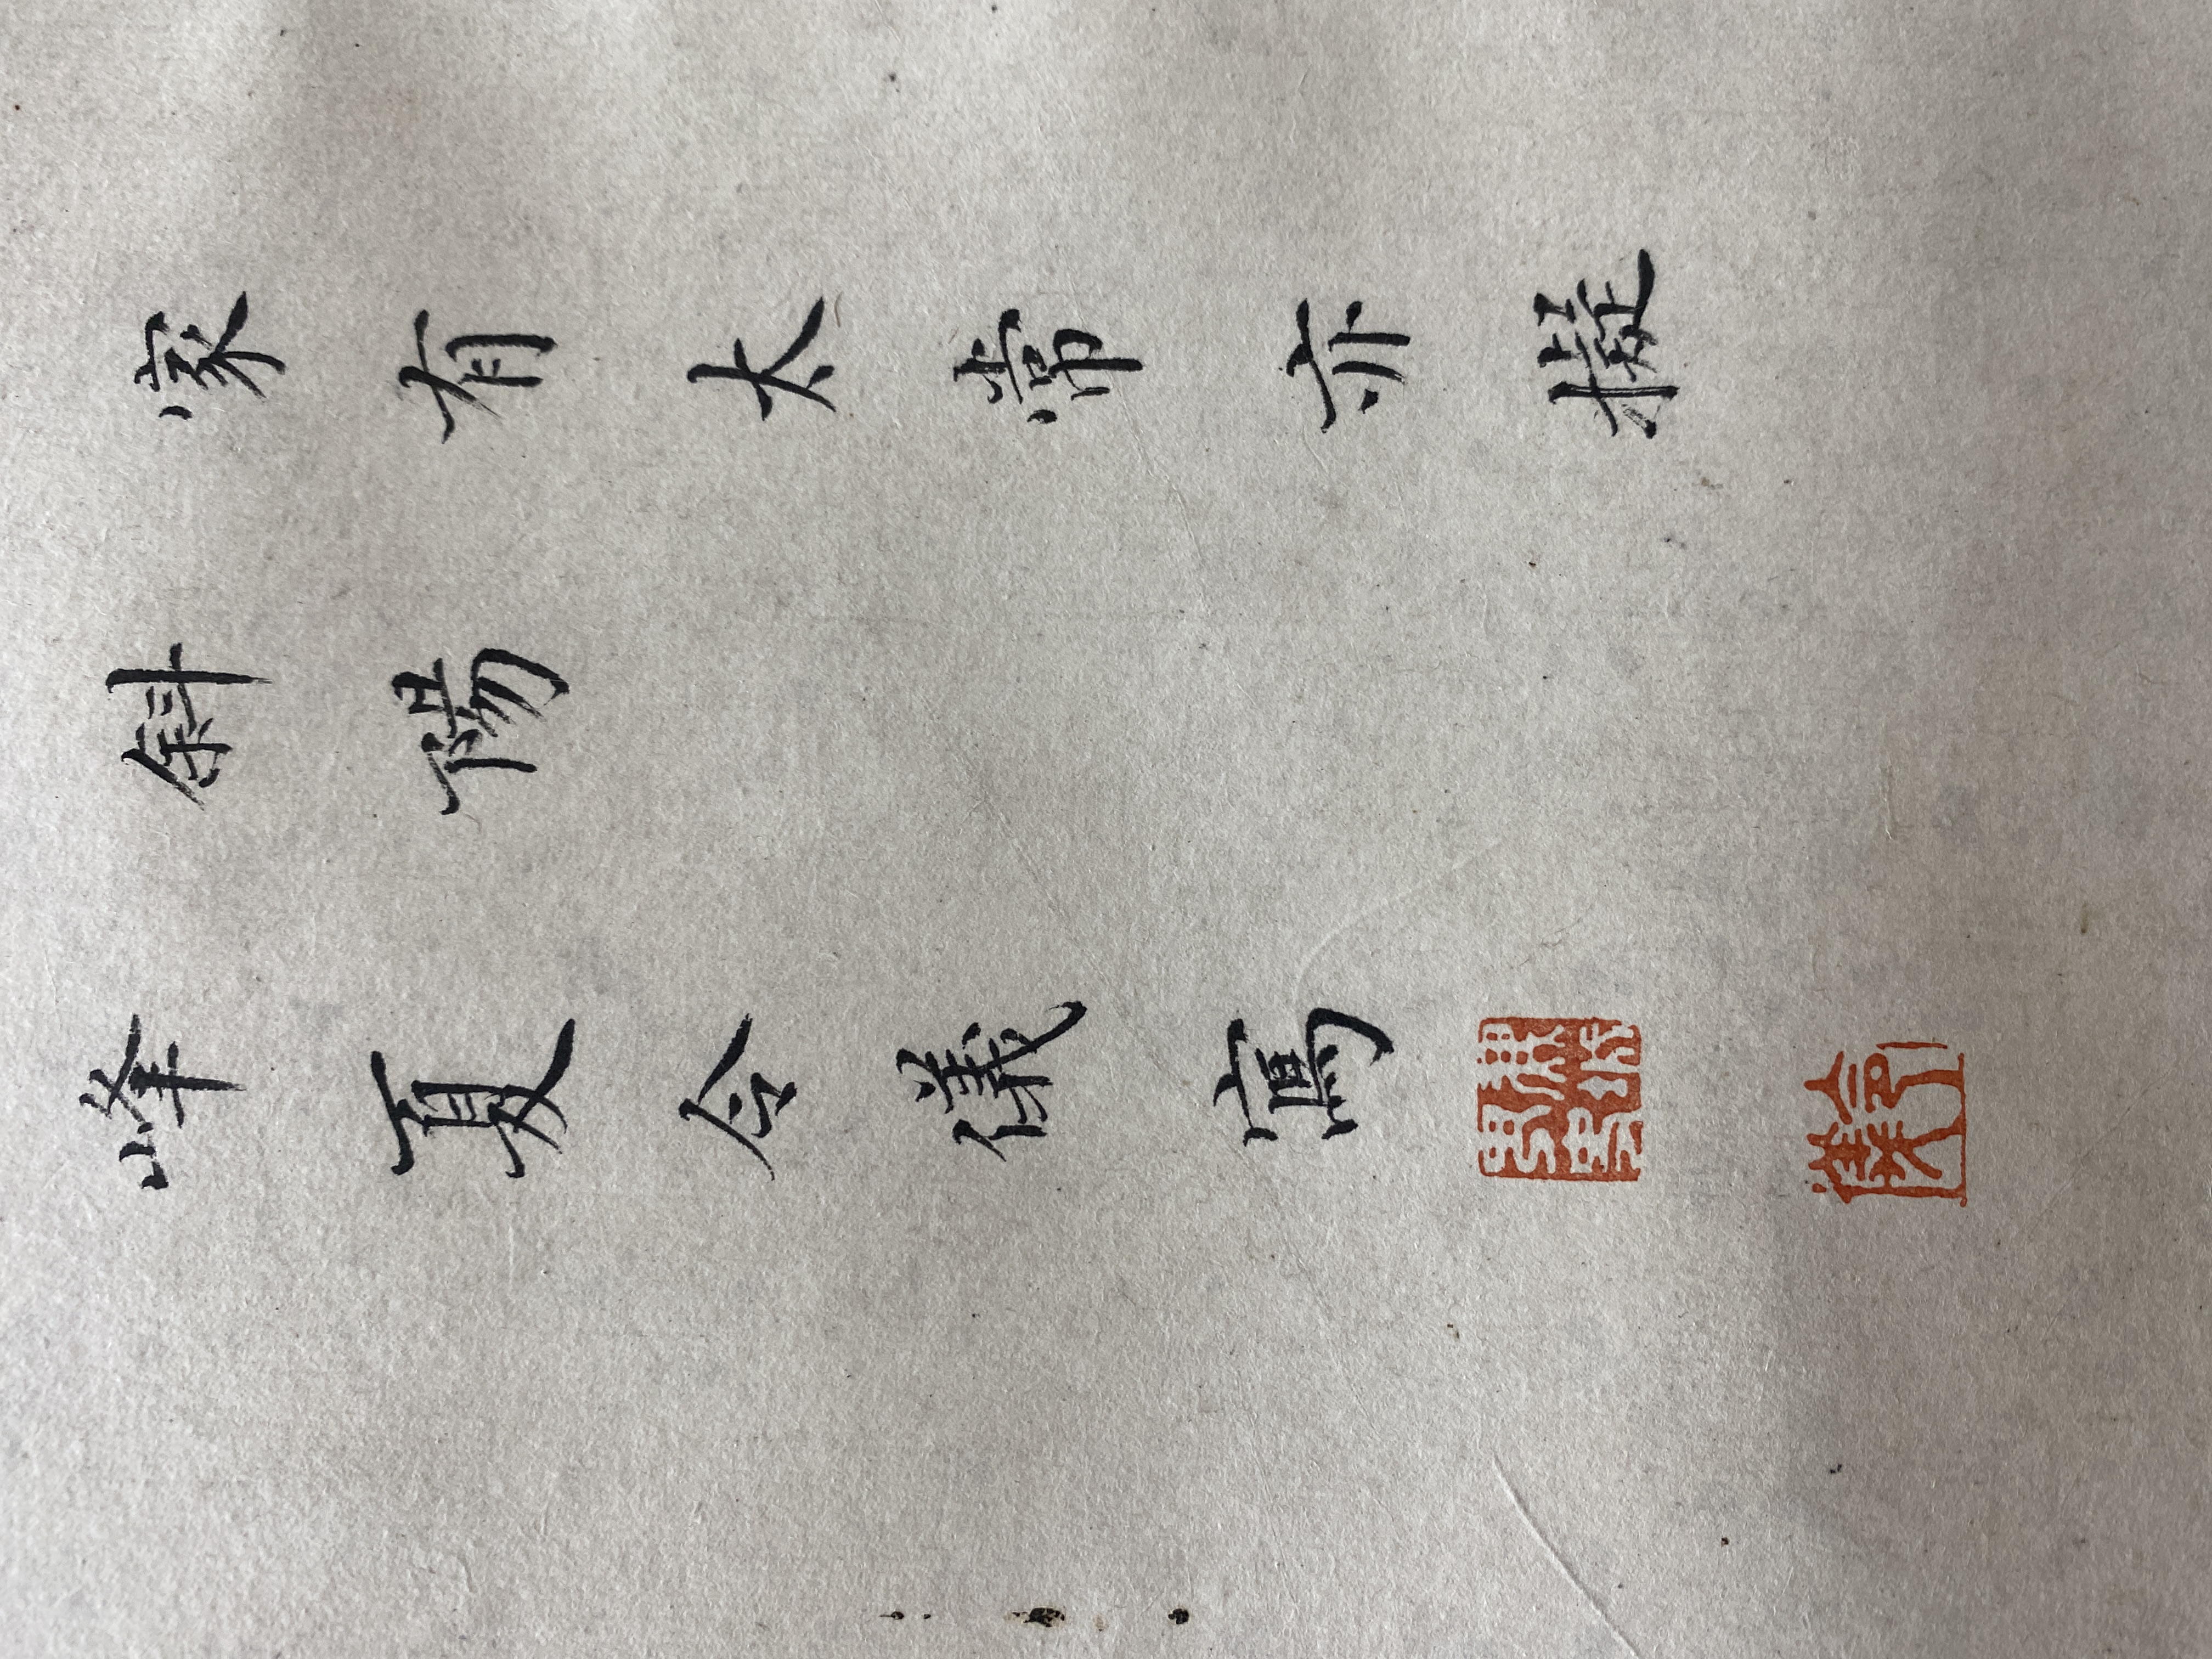 家有太常亦
斜陽
峰夏令儀寫
令儀